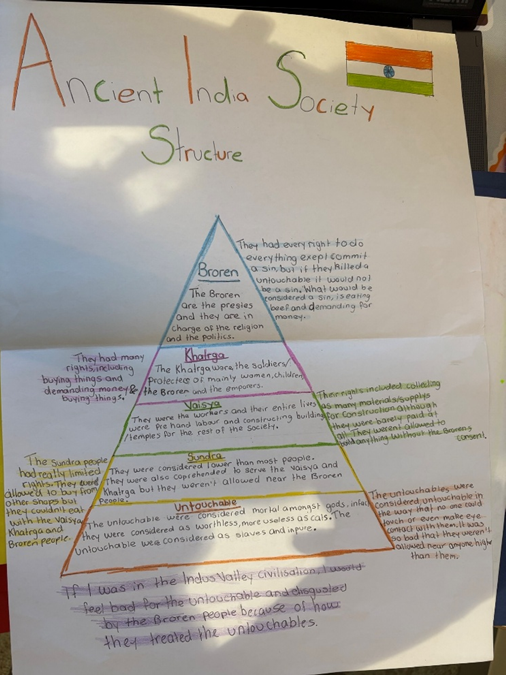 Ancient India Society
Structure
Broren
The Broren
are the presies
and they are in
charge of the religion
and the politics.
They had every right to do
everything exept commit
a sin, but if they killed a
untouchable it would not
be a sin. What would be
considered a sin, is eating
beef and demanding for
money.
Khatrga
The Khatrga were the soldiers/
Protecters of mainly women, children,
the Broren and the emporers.
They had many
rights, including
buying things and
demanding money &
buying things.
Vaisya
They were the workers and their entire lives
were pre hand labour and constructing building
/temples for the rest of the society.
Their rights included collecting
as many materials/supplys
for construction although
they were barely paid at
all. They weren't allowed to
hold anything without the Broren's
consent.
Sundra
They were considered lower than most people.
They were also coprehended to serve the Vaisya and
Khatrga but they weren't allowed near the Broren
People.
The Sundra people
had really limited
rights. They were
allowed to buy from
other shops but
they couldn't eat
with the Vaisya,
Khatrga and
Broren people.
Untouchable
The untouchable were considered mortal amongst gods, infact
they were considered as worthless, more useless as cals. The
untouchable were considered as slaves and inpure.
The untouchables were
considered untouchable in
the way that no one could
touch or even make eye
contact with them. It was
so bad that they weren't
allowed near anyone higher
than them.
If I was in the Indus Valley civilisation, I would
feel bad for the untouchable and disgusted
by the Broren people because of how
they treated the untouchables.